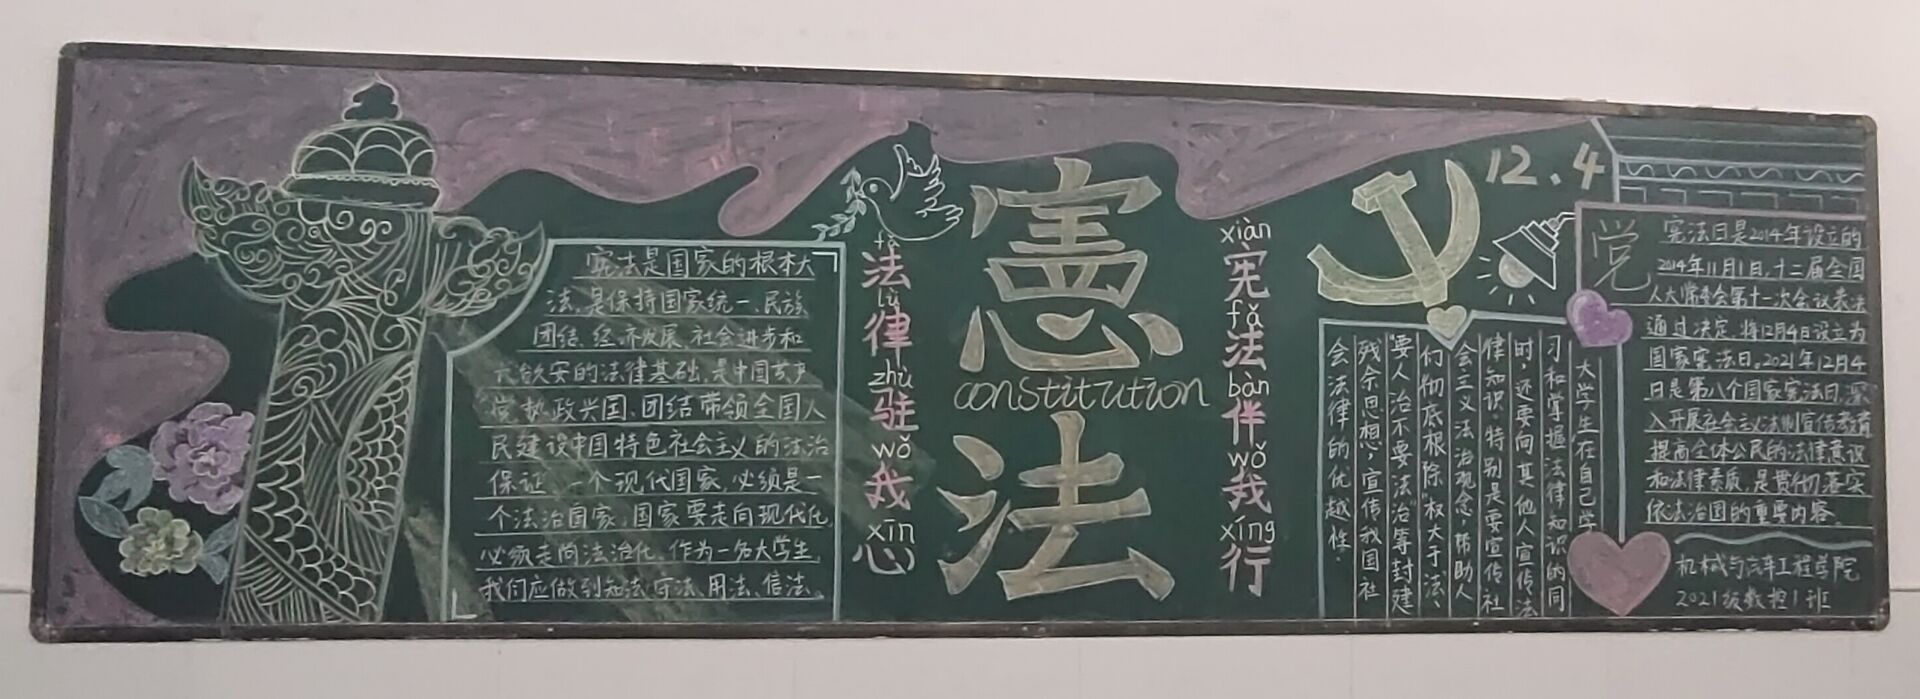 宪法是国家的根本大
法,是保持国家统一、民族
团结、经济发展、社会进步和
长治久安的法律基础,是中国共产
党执政兴国、团结带领全国人
民建设中国特色社会主义的法治
保证。一个现代国家,必须是一
个法治国家;国家要走向现代化,
必须走向法治化。作为一名大学生,
我们应做到知法、守法、用法、信法。
fǎ lǜ zhù wǒ xīn
法律驻我心
憲法
constitution
xiàn fǎ bàn wǒ xíng
宪法伴我行
12.4
大学生在自己学
习和掌握法律知识的同
时,还要向其他人宣传法
律知识,特别是要宣传社
会主义法治观念,帮助人
们彻底根除“权大于法”、
“要人治不要法治”等封建
残余思想,宣传我国社
会法律的优越性.
党
宪法日是2014年设立的
2014年11月1日,十二届全国
人大常委会第十一次会议表决
通过决定,将12月4日设立为
国家宪法日。2021年12月4
日是第八个国家宪法日,深
入开展社会主义法制宣传教育
提高全体公民的法律意识
和法律素质,是贯彻落实
依法治国的重要内容。
机械与汽车工程学院
2021级数控1班